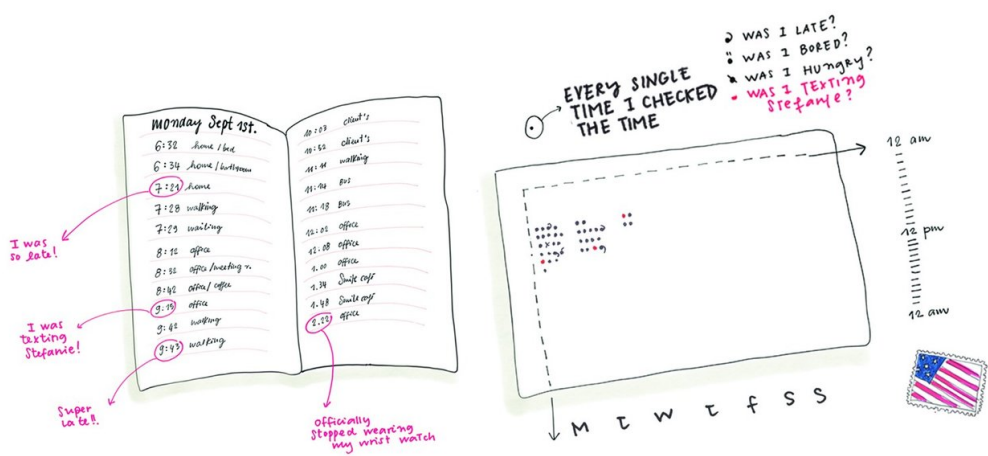 monday Sept 1st.
6:32 home / bed
6:34 home / bathroom
7:21 home
7:28 walking
7:29 waiting
8:12 office
8:32 office / meeting r.
8:42 office / coffee
9:15 office
9:42 walking
9:43 walking
10:03 client's
10:32 client's
11:11 walking
11:14 BUS
11:18 BUS
12:02 office
12:08 office
1.00 office
1.34 Smile cafè
1.48 Smile cafè
2.22 office
I was
so late!
I was
texting
Stefanie!
Super
late!!
officially
stopped wearing
my wrist watch
EVERY SINGLE
TIME I CHECKED
THE TIME
WAS I LATE?
WAS I BORED?
WAS I HUNGRY?
WAS I TEXTING
Stefanie?
12 am
12 pm
12 am
M T W T F S S